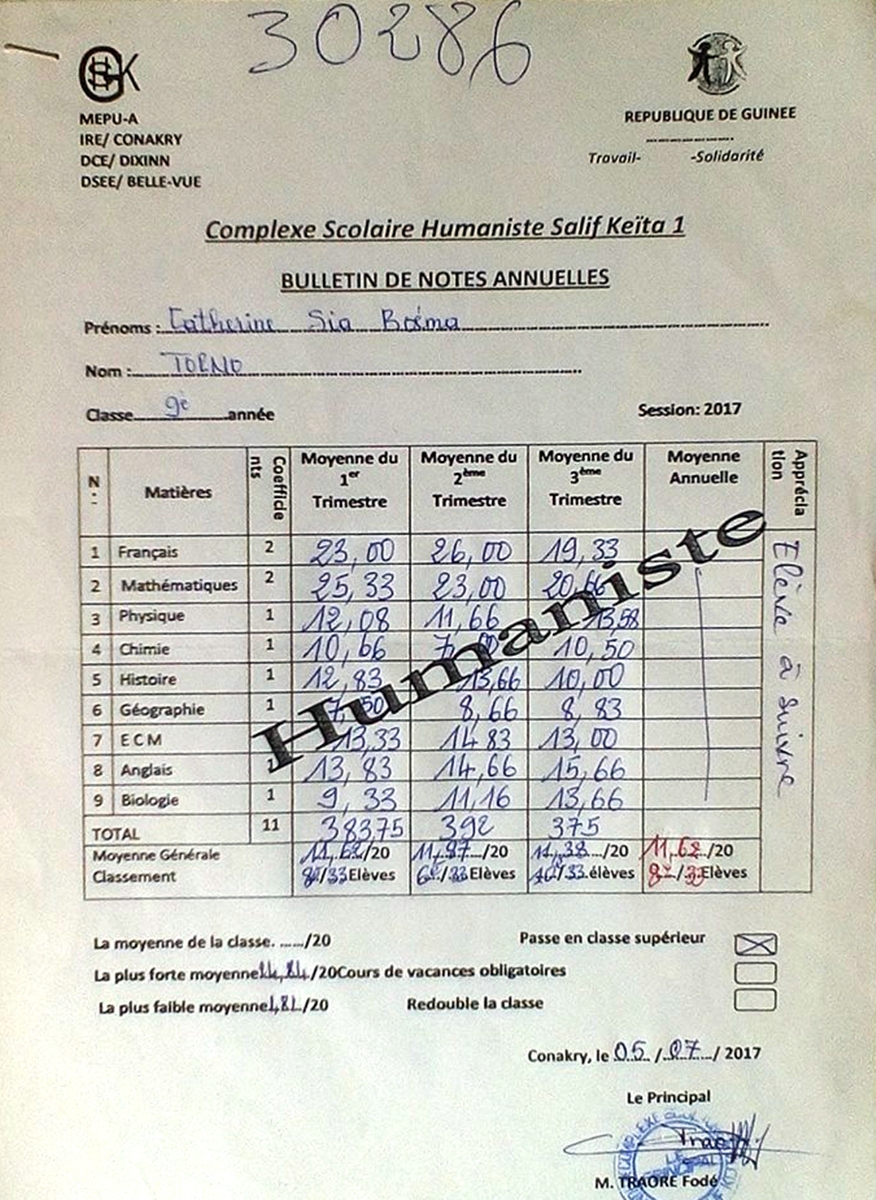 30286
GHSK
MEPU-A
IRE/ CONAKRY
DCE/ DIXINN
DSEE/ BELLE-VUE
REPUBLIQUE DE GUINEE
Travail- -Solidarité
Complexe Scolaire Humaniste Salif Keïta 1
BULLETIN DE NOTES ANNUELLES
Prénoms : Catherine Sia
Nom : TORNO
Classe 9è année
Session: 2017
N° Matières Coefficients Moyenne du 1er Trimestre Moyenne du 2ème Trimestre Moyenne du 3ème Trimestre Moyenne Annuelle Appréciation
1 Français 2 23,00 26,00 19,33
2 Mathématiques 2 25,33 23,00 20,66
3 Physique 1 12,08 11,66 13,58
4 Chimie 1 10,66 10,50
5 Histoire 1 12,83 13,66 10,00
6 Géographie 1 7,50 8,66 8,83
7 E C M 13,33 14 83 13,00
8 Anglais 1 13,83 14,66 15,66
9 Biologie 1 9,33 11,16 13,66
TOTAL 11 383,75 392 375
Moyenne Générale /20 /20 11,38 /20 11,62 /20
Classement /33 Elèves /33 Elèves /33 élèves Elèves
Elève à suivre
Humaniste
La moyenne de la classe. ....../20
Passe en classe supérieur
La plus forte moyenne /20 Cours de vacances obligatoires
La plus faible moyenne /20 Redouble la classe
Conakry, le 05 / 07 / 2017
Le Principal
M. TRAORE Fodé